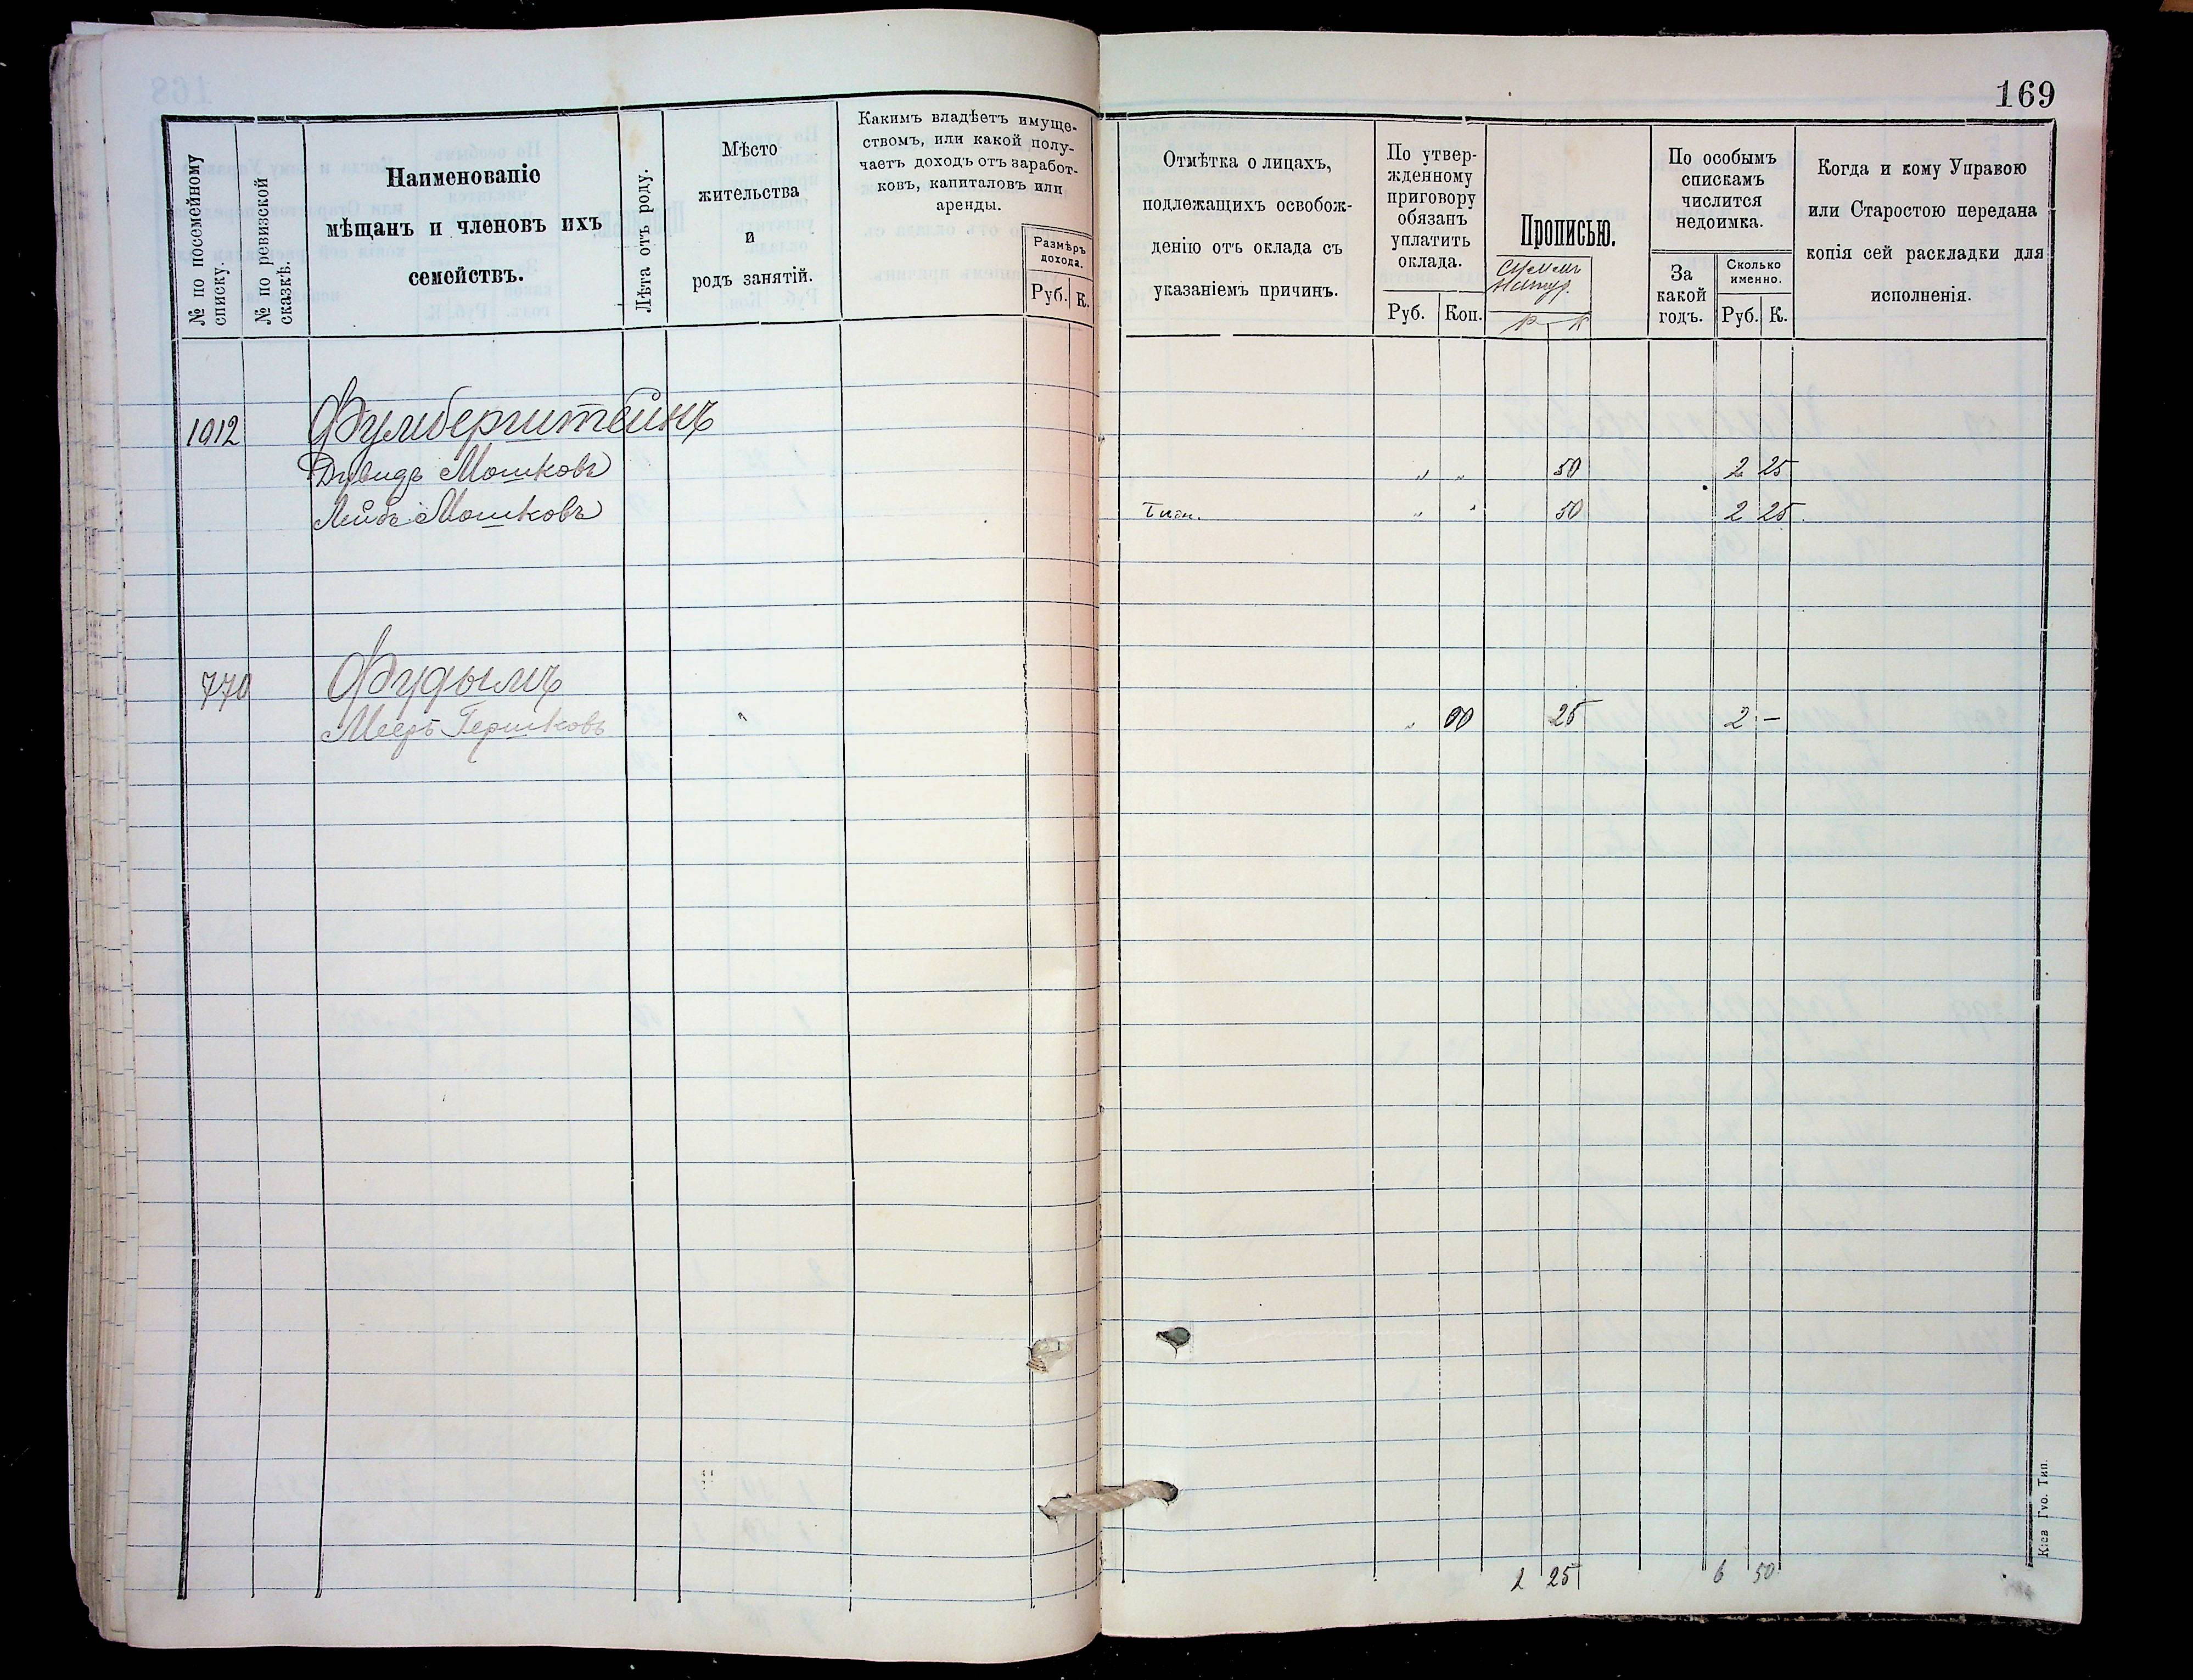 169
№ по посемейному списку.
№ по ревизской сказкѣ.
Наименованіе
мѣщанъ и членовъ ихъ
семействъ.
Лѣта отъ роду.
Мѣсто
жительства
и
родъ занятій.
Какимъ владѣетъ имуще-
ствомъ, или какой полу-
чаетъ доходъ отъ заработ-
ковъ, капиталовъ или
аренды.
Размѣръ
дохода.
Руб. К.
Отмѣтка о лицахъ,
подлежащихъ освобож-
денію отъ оклада съ
указаніемъ причинъ.
По утвер-
жденному
приговору
обязанъ
уплатить
оклада.
Руб. Коп.
Прописью.
Р К
По особымъ
спискамъ
числится
недоимка.
За
какой
годъ.
Сколько
именно.
Руб. К.
Когда и кому Управою
или Старостою передана
копія сей раскладки для
исполненія.
1912 Фумберштейнъ
Дувидъ Мошковъ „ „ 50 2 25
Лейба Мошковъ „ „ 50 2 25
770 Фудымъ
Мееръ Гершковъ „ „ 25 2 —
1 25 6 50
Кіев Губ. Тип.